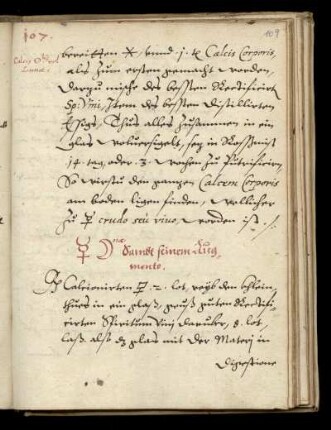 107.
109
Calcis ☉ vel Lunae.
bereitten ⚹, vnnd j. ℔ Calcis Corporis,
als zum ersten gemacht worden,
darzu mische des besten Rectificirten
Sp: Vini, Item des besten Distillirten
Essigs, Thus alles zusammen in ein
glas wolversigelt, setz in Rossmist
14. tag, oder 3. wochen zu Putrificirn,
So wirstu den ganzen Calcem Corporis
am boden ligen finden, wellicher
zu ☿ crudo seu vivo, worden ist ./.
☿ Sambt seinem Aug-
mento.
℞ Calcionirten 2. lot, reyb den klein,
thues in ein glaß, geuß guten Rectifi-
cirten Spiritum Vini darüber, 8. lot,
laß also dz glas mit der Materj in
Digestione